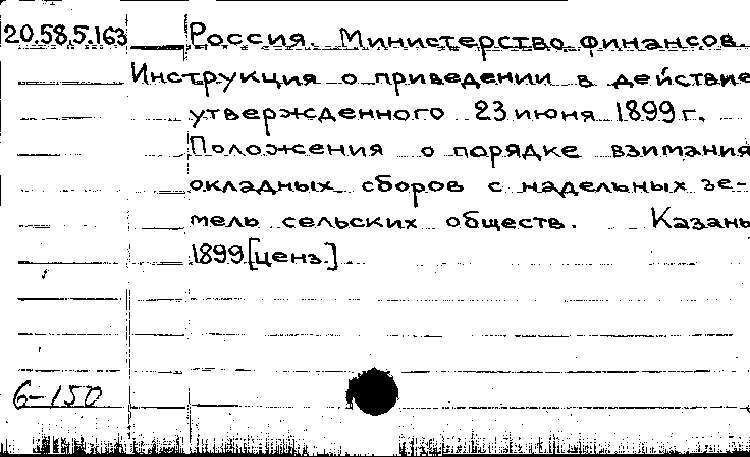 20.58.5.163 Россия. Министерство финансов.
Инструкция о приведении в действие
утвержденного 23 июня 1899 г.
Положения о порядке взимания
окладных сборов с надельных зе-
мель сельских обществ. Казань
1899 [ценз.]
6-150